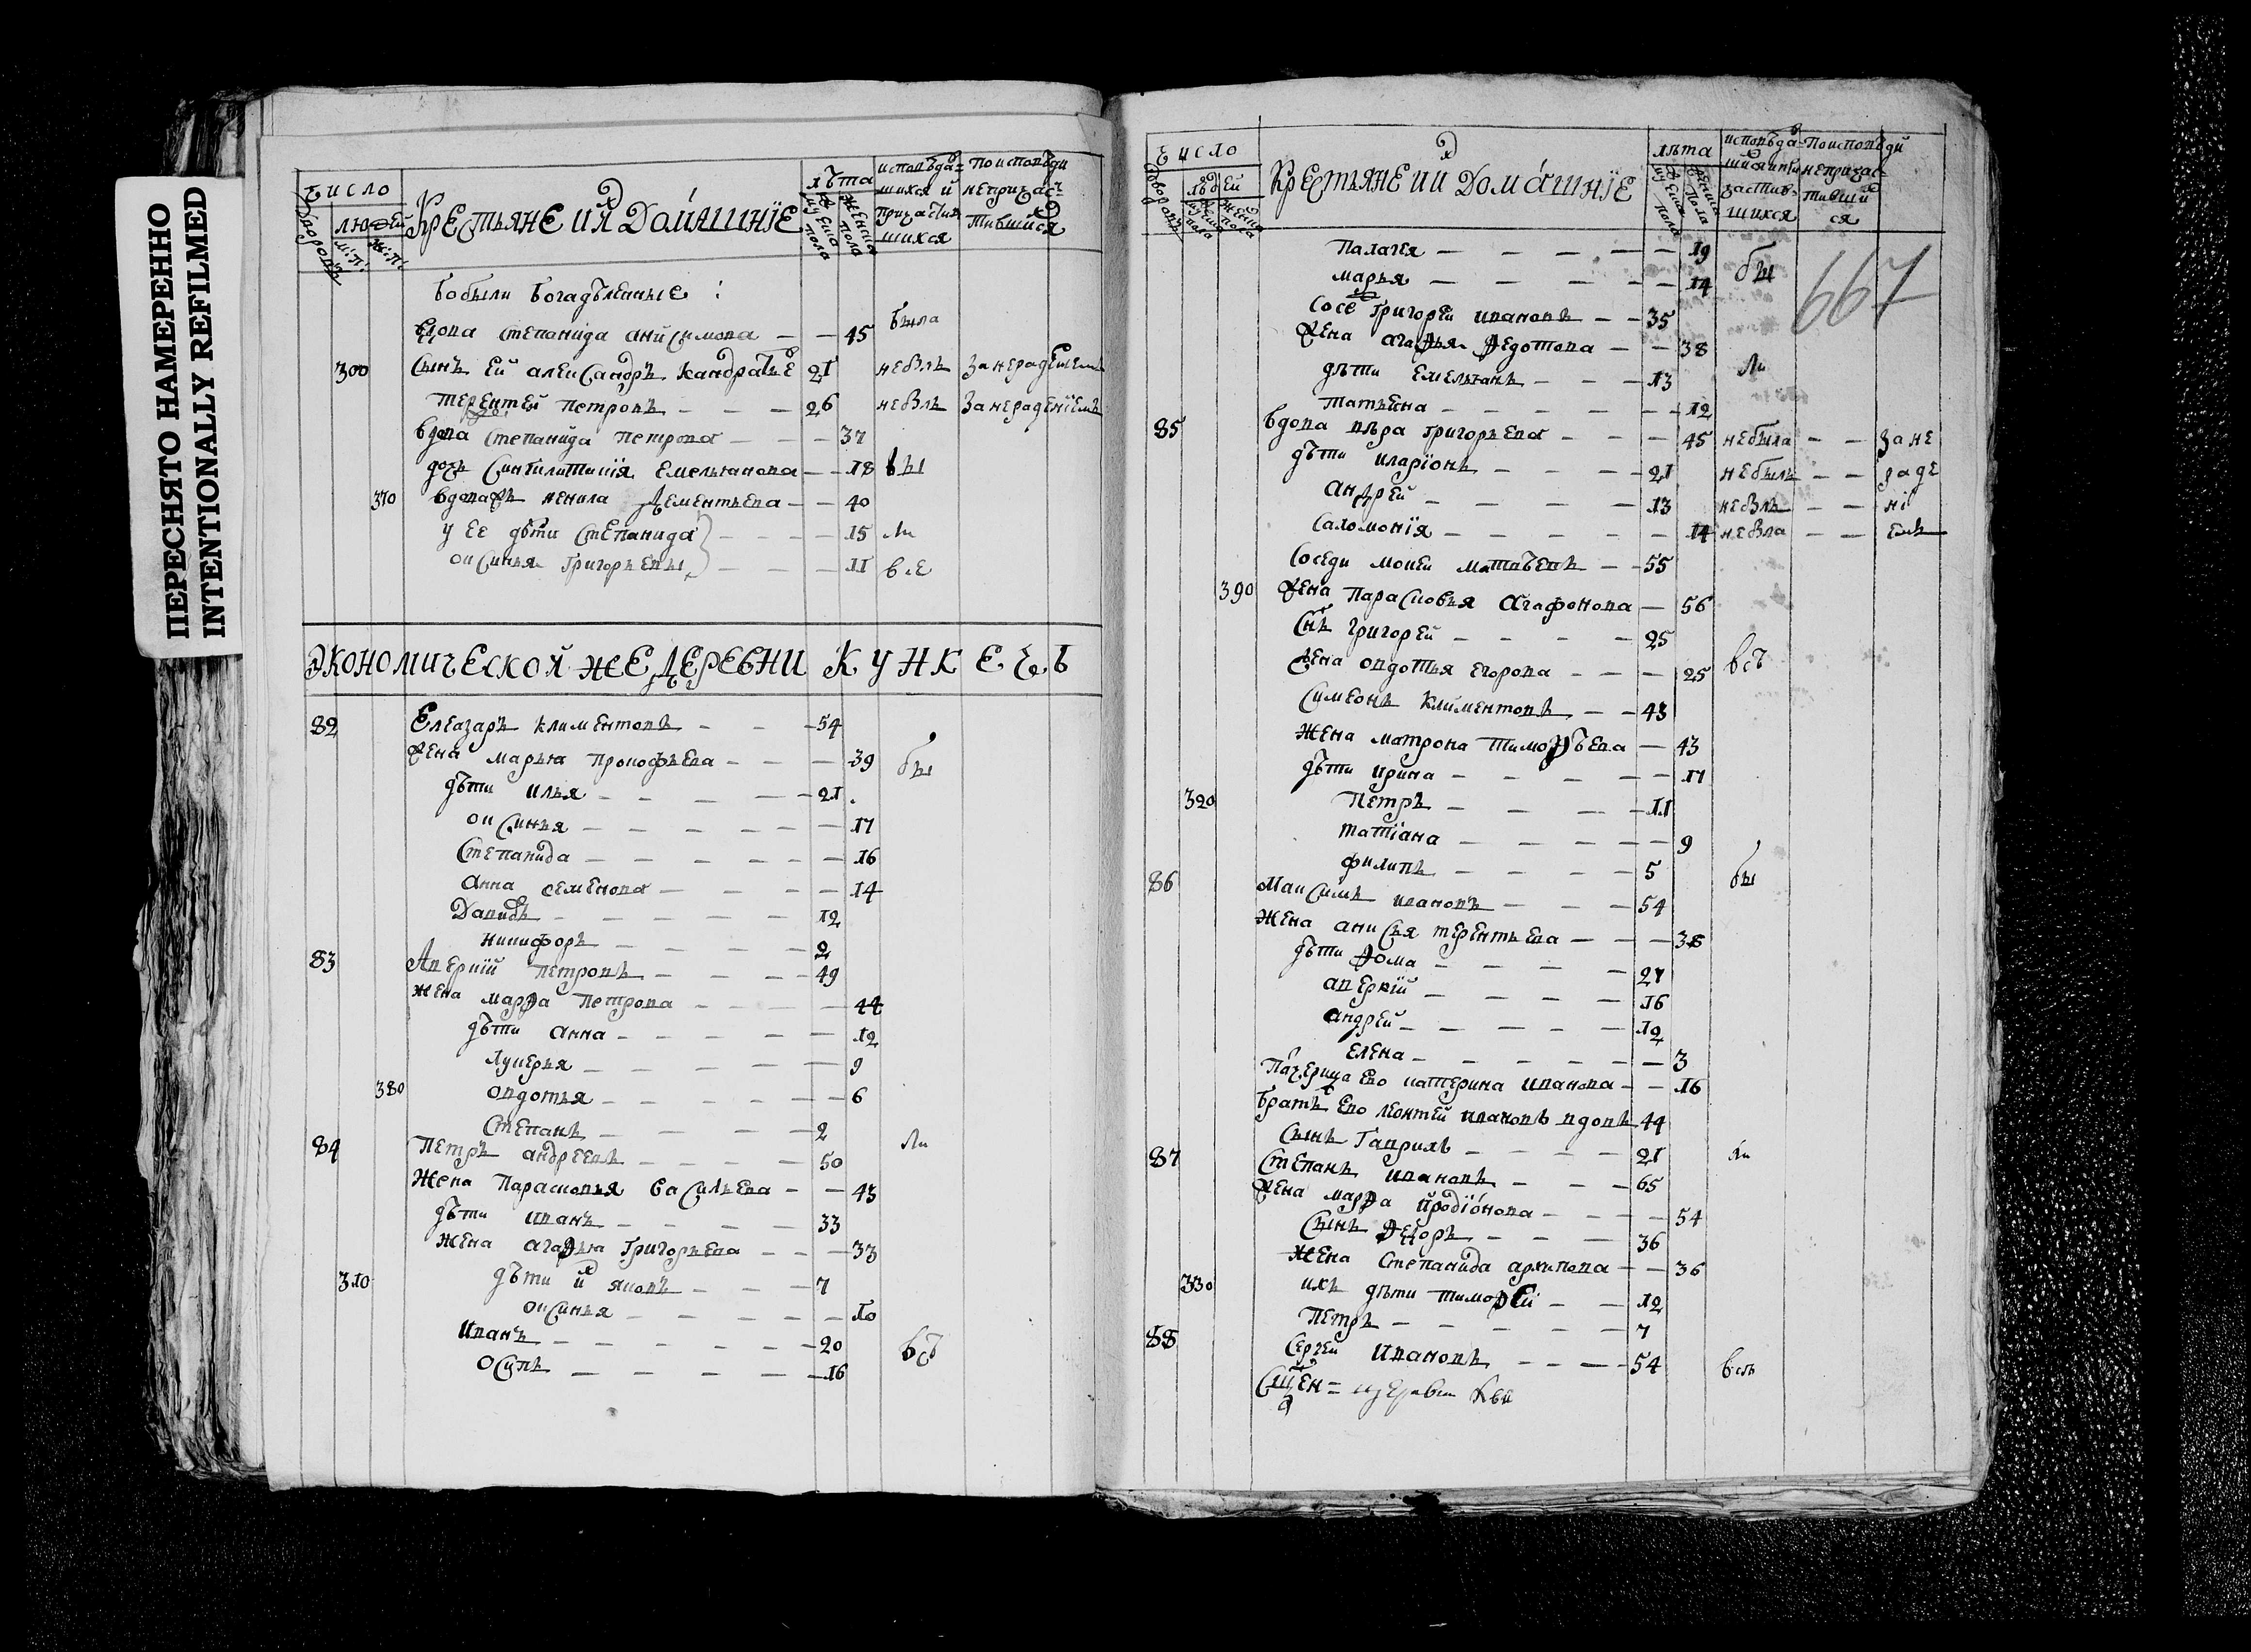 ПЕРЕСНЯТО НАМЕРЕННО
INTENTIONALLY REFILMED
Число
дворовъ
людей
м: п:
ж: п:
Крестьяне ихъ домашнїе
лѣта
мужеска пола
женска пола
исповѣда=
шихся и
причастив
шихся
по исповѣди
непричас-
тившихся
бобыли богадѣленные :
вдова степанида анисимова — — 45 была
300 сынъ ей александръ кандратьев 21 небылъ за нерадѣнїемъ
терентей петровъ — — — 26 небылъ за нерадѣнїемъ
вдова степанида петрова — — — 37
дочь синклитикїя емельянова — — 18 бы
370 вдова ненила дементьева — — 40
у ее дѣти степанида — — — 15 ли
оксинья григорьевы — — — 11 все
Экономической же деревни Кункечъ
82 Елеазаръ климентовъ — — — 54
жена марья прокофьева — — — 39 бы
дѣти илья — — — — 21
оксинья — — — — — 17
степанида — — — — — 16
анна семенова — — — — 14
давидъ — — — — — 12
никифоръ — — — — 2
83 Аверкїй петровъ — — — — 49
жена марѳа петрова — — — — 44
дѣти анна — — — — — 12
лукерья — — — — — 9
380 овдотья — — — — — 6
степанъ — — — — 2
84 петръ андреевъ — — — — 50 ли
жена парасковья васильева — — 43
дѣти иванъ — — — — 33
жена агаѳья григорьева — — — 33
310 дѣти их яковъ — — — 7
оксинья — — — — — 10
иванъ — — — — — 20 всѣ
осипъ — — — — — 16
Число
дворовъ
людей
мужеска пола
женска пола
Крестьяне ихъ домашнїе
лѣта
мужеска пола
женска пола
исповѣда
шихся и при
частив-
шихся
по исповѣди
непричас
тивших
ся
667
палагея — — — — — 19
марья — — — — — 14 бы
сосе григорей ивановъ — — 35
жена агаѳья ѳедотова — — 38
дѣти емельянъ — — — 13 ли
татьяна — — — — — 12
85 вдова вѣра григорьева — — — 45 небыла — — за не
дѣти иларїонъ — — — — 21 небылъ — — раде
андрей — — — — 13 небылъ — — нї
саломонїя — — — — — 14 небыла — — емъ
соседи мокей матвѣевъ — — 55
390 жена парасковья агафонова — 56
снъ григорей — — — — 25
жена овдотья егорова — — — 25 всѣ
симеонъ климентовъ — — 43
жена матрона тимоѳѣева — 43
дѣти ирина — — — — — 17
320 петръ — — — — — 11
татїана — — — — — 9
филипъ — — — — 5
86 максимъ ивановъ — — — 54 бы
жена анисья терентьева — — — 38
дѣти ѳома — — — — 27
аверкїй — — — — 16
андрей — — — — — 12
елена — — — — — — 3
пачерица ево катерина иванова — — 16
братъ ево леонтей ивановъ вдовъ 44
сынъ гаврилъ — — — — 21
87 степанъ ивановъ — — — 65 ли
жена марѳа иродїонова — — — — 54
сынъ ѳедоръ — — — 36
жена степанида архипова — — 36
330 ихъ дѣти тимоѳей — — 12
петръ — — — — — 7
88 сергей ивановъ — — — 54 былъ